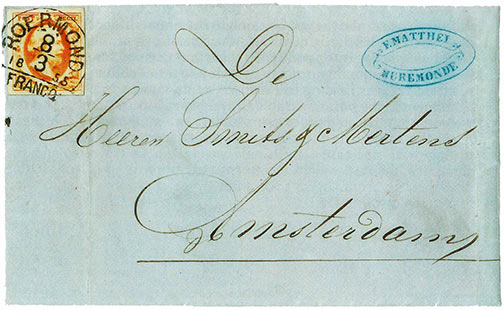 ROERMOND
8/3
18 55
FRANCO
F. MATTHEI
RUREMONDE
De
Heeren Smits & Mertens
Amsterdam